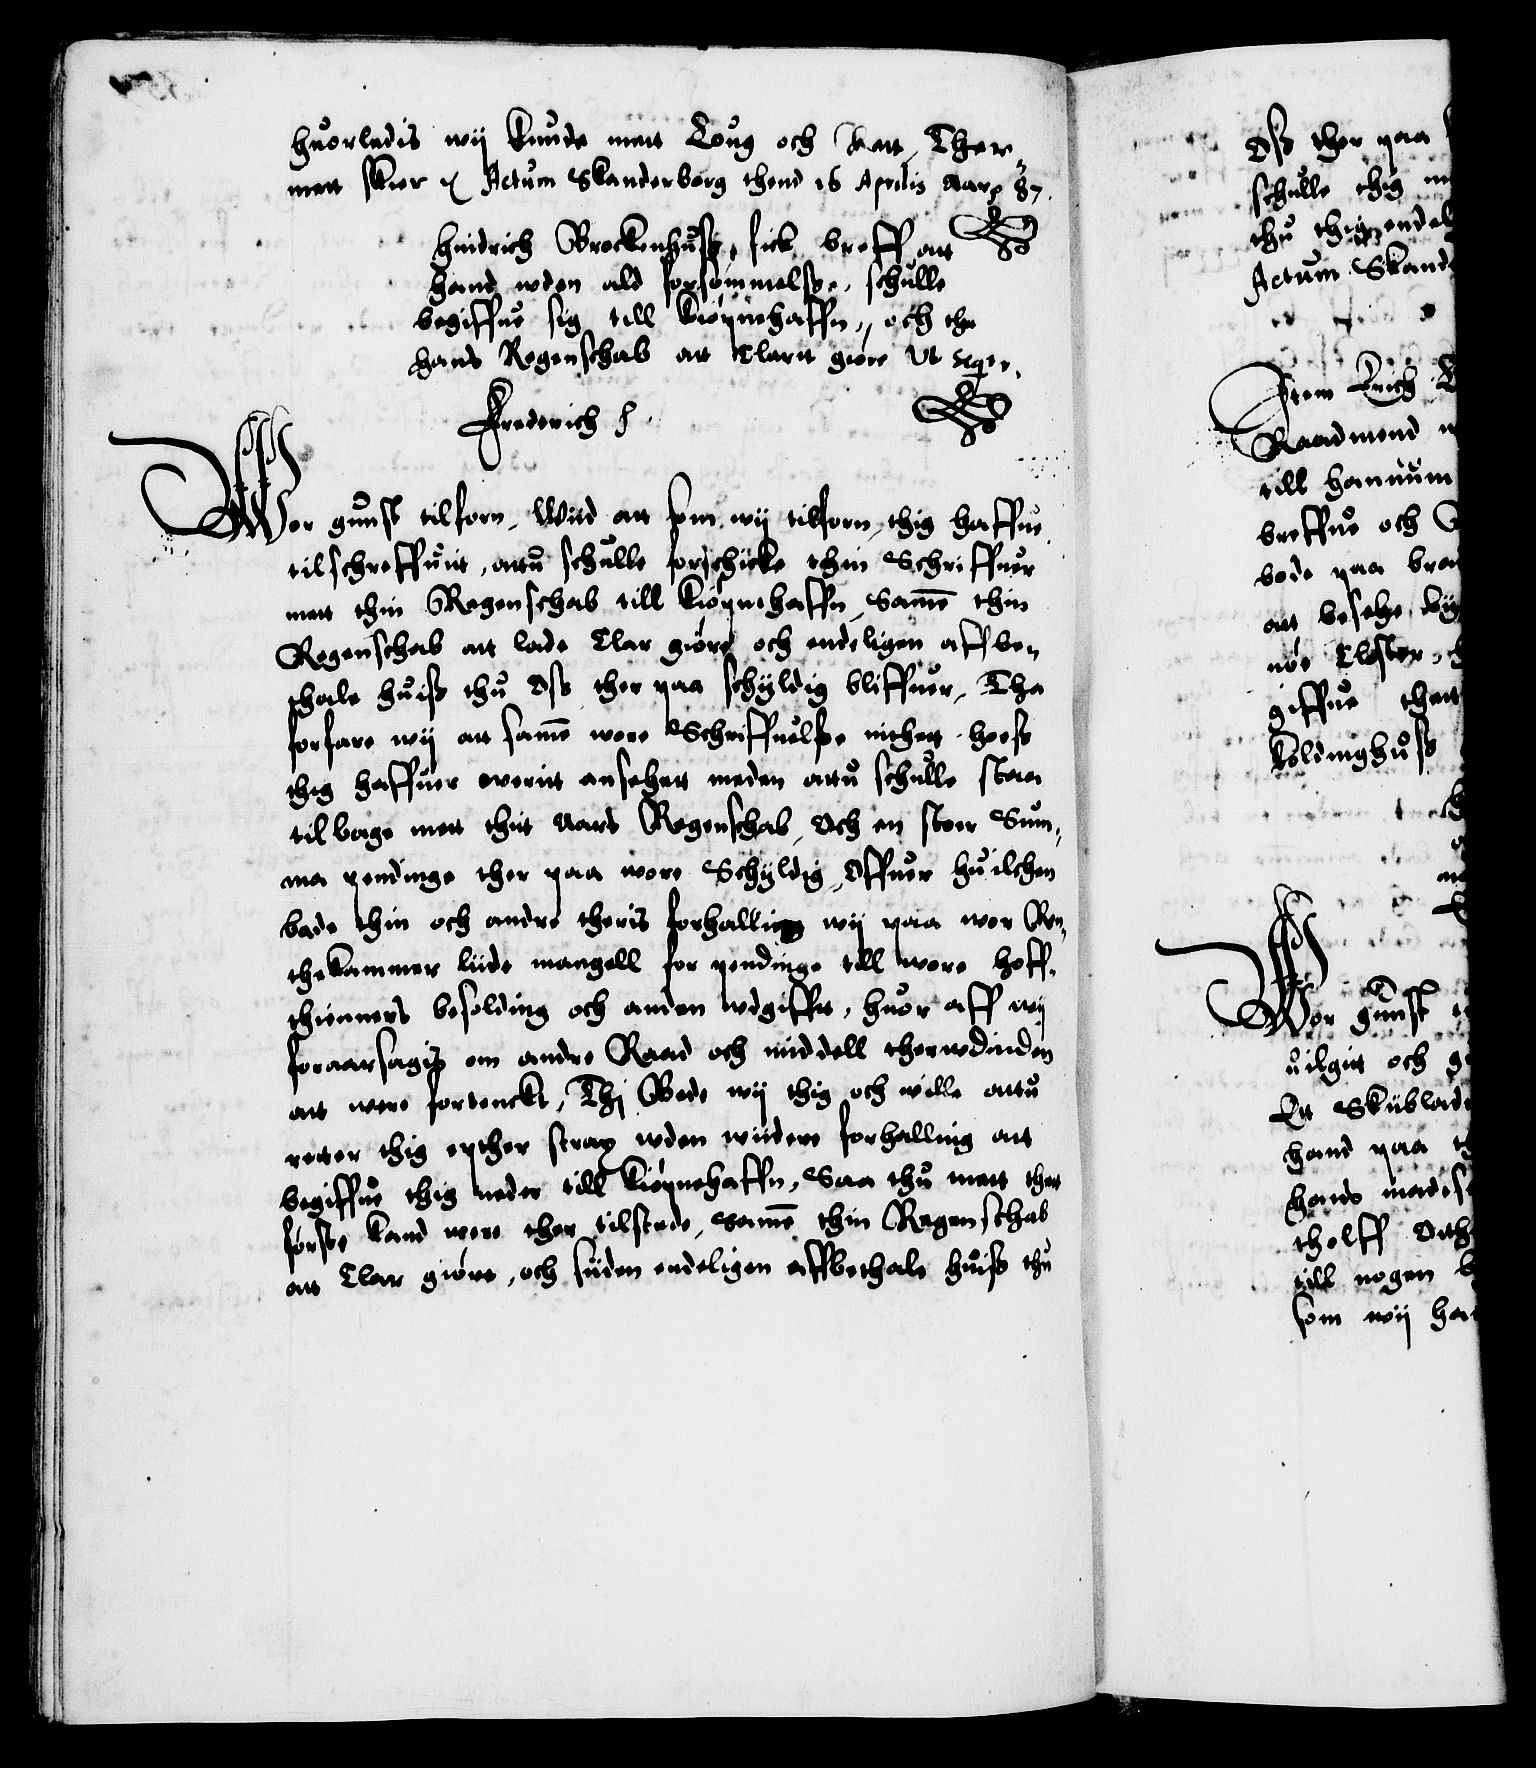 huorledis wij kunde mett Loug och Rett, Ther
mett skier &c Actum Skanderborg thend 16 Aprilis Aarp 87.
Heindrich Brockenhuss, fick breff att
hand uden ald forsømmelsse, schulle
begiffue sig till Kiøpnehaffn, och the
hans Regenschab att Clarit giøre Ut supr.
Frederich
Wor gunst tilforn, Wiid att som wij tilforn, thig haffue
tilschreffuit, attu schulle forschicke thin Schriffuer
mett thin Regenschab till Kiøpnehaffn, Samē thin
Regenschab att lade Clar giøre och endeligen affbe-
thale huiss thu Oss ther paa schyldig bliffuer, Tha
forfare wij att samē wore Schriffuelsse inthett hoess
thig haffuer werit ansehett meden attu schulle staa
tilbage mett thit Aars Regenschab, Och en stoer Sum-
ma pendinge ther paa were Schyldig, Offuer huilchen
bade thin och andre theris forhalling wij paa wor Ren-
thekammer liide mangell for pendinge till wore hoff-
thienners besolding och anden udgifft, huor aff wij
foraarsagis om andre Raad och middell therudinden
att were fortenckt, Thj Bede wij thig och wille attu
retter thig epther strax uden wiidere forhalling att
begiffue thig neder till Kiøpnehaffn, Saa thu mett thet
første kand were ther tilstede, Samē thin Regenschab
att Clar giøre, och siiden endeligen affbethale huiss thu
Oss ther paa
schulle thig
thu thig endel
Actum Skand
Item Erich
Raadmend
till hannum
breffue och
bode paa
att besehe
nøe Closter
giffue thett
Koldinghuss
Wor gunst
uilgit och
Ett Skiiblade
hand paa
hans mades
tholff
till nogen
som wij